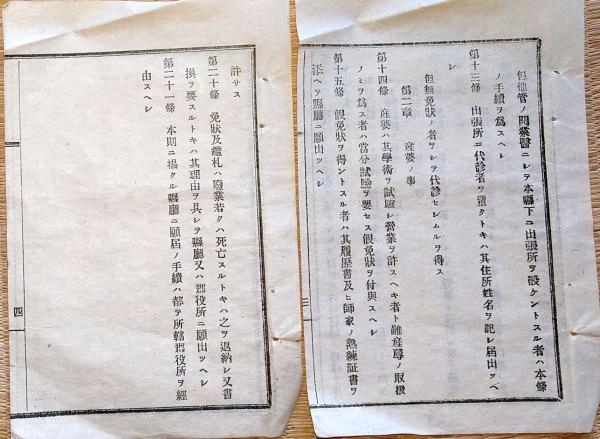 但他管ノ開業醫ニシテ本縣下ニ出張所ヲ設ケントスル者ハ本條
ノ手續ヲ爲スヘシ
第十三條 出張所ニ代診者ヲ置クトキハ其住所姓名ヲ記シ届出ツヘ
シ
但無免狀ノ者ヲシテ代診セシムルヲ得ス
第二章 産婆ノ事
第十四條 産婆ハ其學術ヲ試驗シ營業ヲ許スヘキ者ト雖産辱ノ取扱
ノミヲ爲ス者ハ當分試驗ヲ要セス假免狀ヲ付與スヘシ
第十五條 假免狀ヲ得ントスル者ハ其履歷書及ヒ師家ノ熟練証書ヲ
添ヘテ縣廳ニ願出ツヘシ
三
許サス
第二十條 免狀及鑑札ハ廢業若クハ死亡スルトキハ之ヲ退納シ又書
換ヲ要スルトキハ其理由ヲ具シテ縣廳又ハ郡役所ニ願出ツヘシ
第二十一條 本則ニ揭クル縣廳ニ願届ノ手續ハ都テ所轄郡役所ヲ經
由スヘシ
四